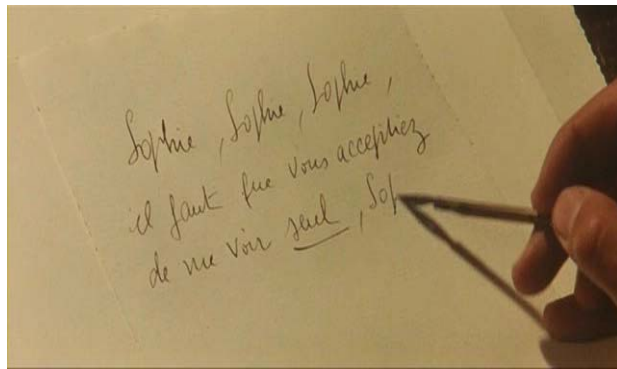 Sophie, Sophie, Sophie,
il faut que vous acceptiez
de me voir seul, Sop